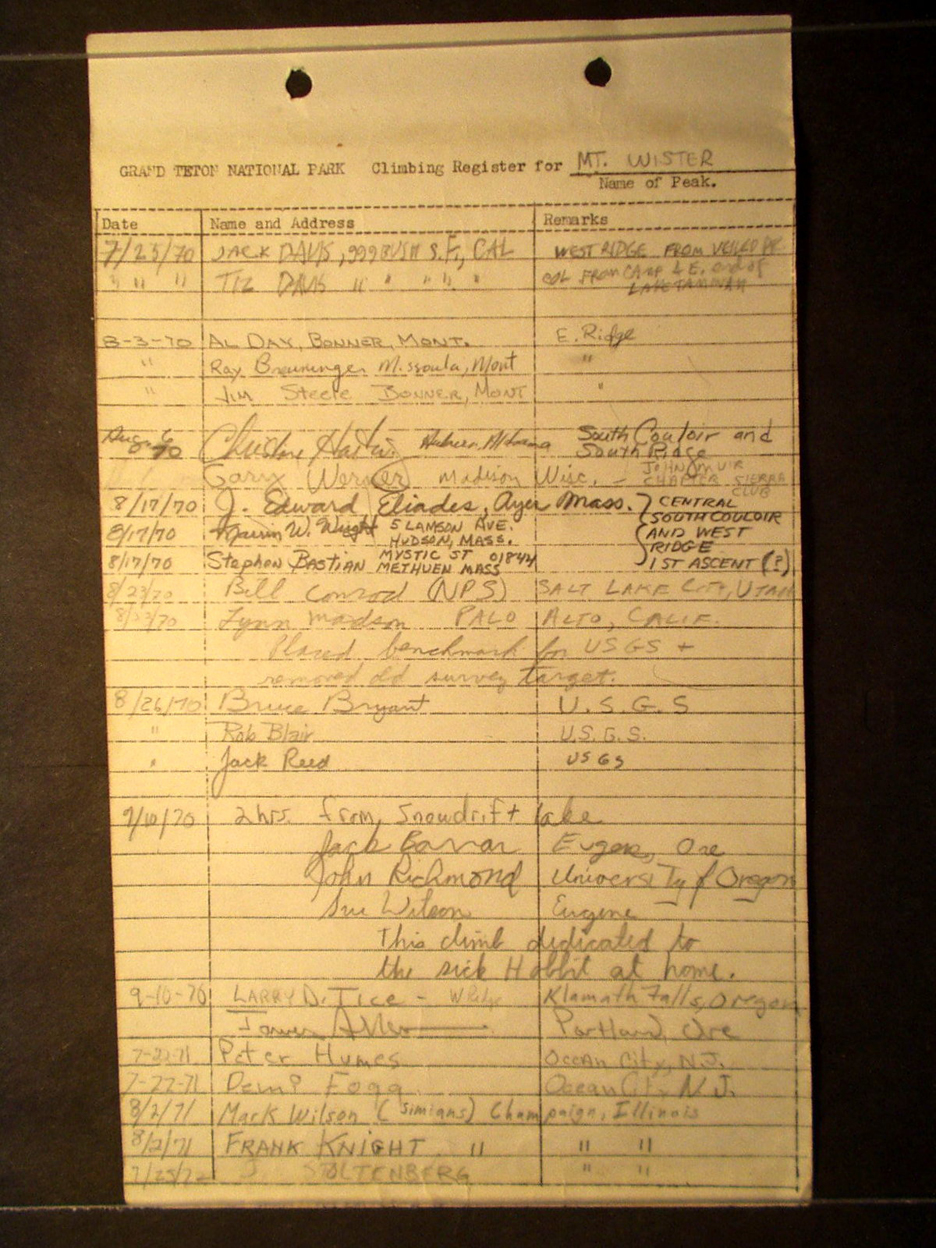 GRAND TETON NATIONAL PARK Climbing Register for MT. WISTER
Name of Peak.
Date Name and Address Remarks
7/25/70 JACK DAVIS, 999 BUSH S.F., CAL WEST RIDGE FROM
" " " TIZ DAVIS " " " " " COL FROM CAMP & E. end of
LAKE TAMINAH
8-3-70 AL DAY, BONNER, MONT. E. Ridge
" Ray Breuninger Missoula, Mont "
" JIM Steele BONNER, MONT "
Aug. 6 70 South Couloir and
South Ridge
Gary Werner Madison Wisc. - JOHN MUIR
CHAPTER SIERRA
CLUB
8/17/70 J. Edward Eliades, Ayer Mass. } CENTRAL
SOUTH COULOIR
8/17/70 W. Wright 5 LAMSON AVE. AND WEST
HUDSON, MASS. RIDGE
8/17/70 Stephen BASTIAN MYSTIC ST 01844 1ST ASCENT (?)
METHUEN MASS
8/23/70 Bill Conrod (NPS) SALT LAKE CITY, UTAH
8/23/70 Lynn Madson PALO ALTO, CALIF.
Placed benchmark for USGS +
removed old survey target.
8/26/70 Bruce Bryant U.S.G.S
" Rob Blair U.S.G.S.
" Jack Reed USGS
9/10/70 2 hrs. from Snowdrift lake
Jack Eugene, Ore
John Richmond University of Oregon
Sue Wilson Eugene
This climb dedicated to
the sick Hobbit at home.
9-10-70 LARRY D. TICE - W Ridge Klamath Falls, Oregon
Portland, Ore
7-22-71 Peter Humes Ocean City, N.J.
7-27-71 Fogg Ocean City N.J.
8/2/71 Mack Wilson (Simians) Champaign, Illinois
8/2/71 FRANK KNIGHT " " "
7/25/72 STOLTENBERG " "